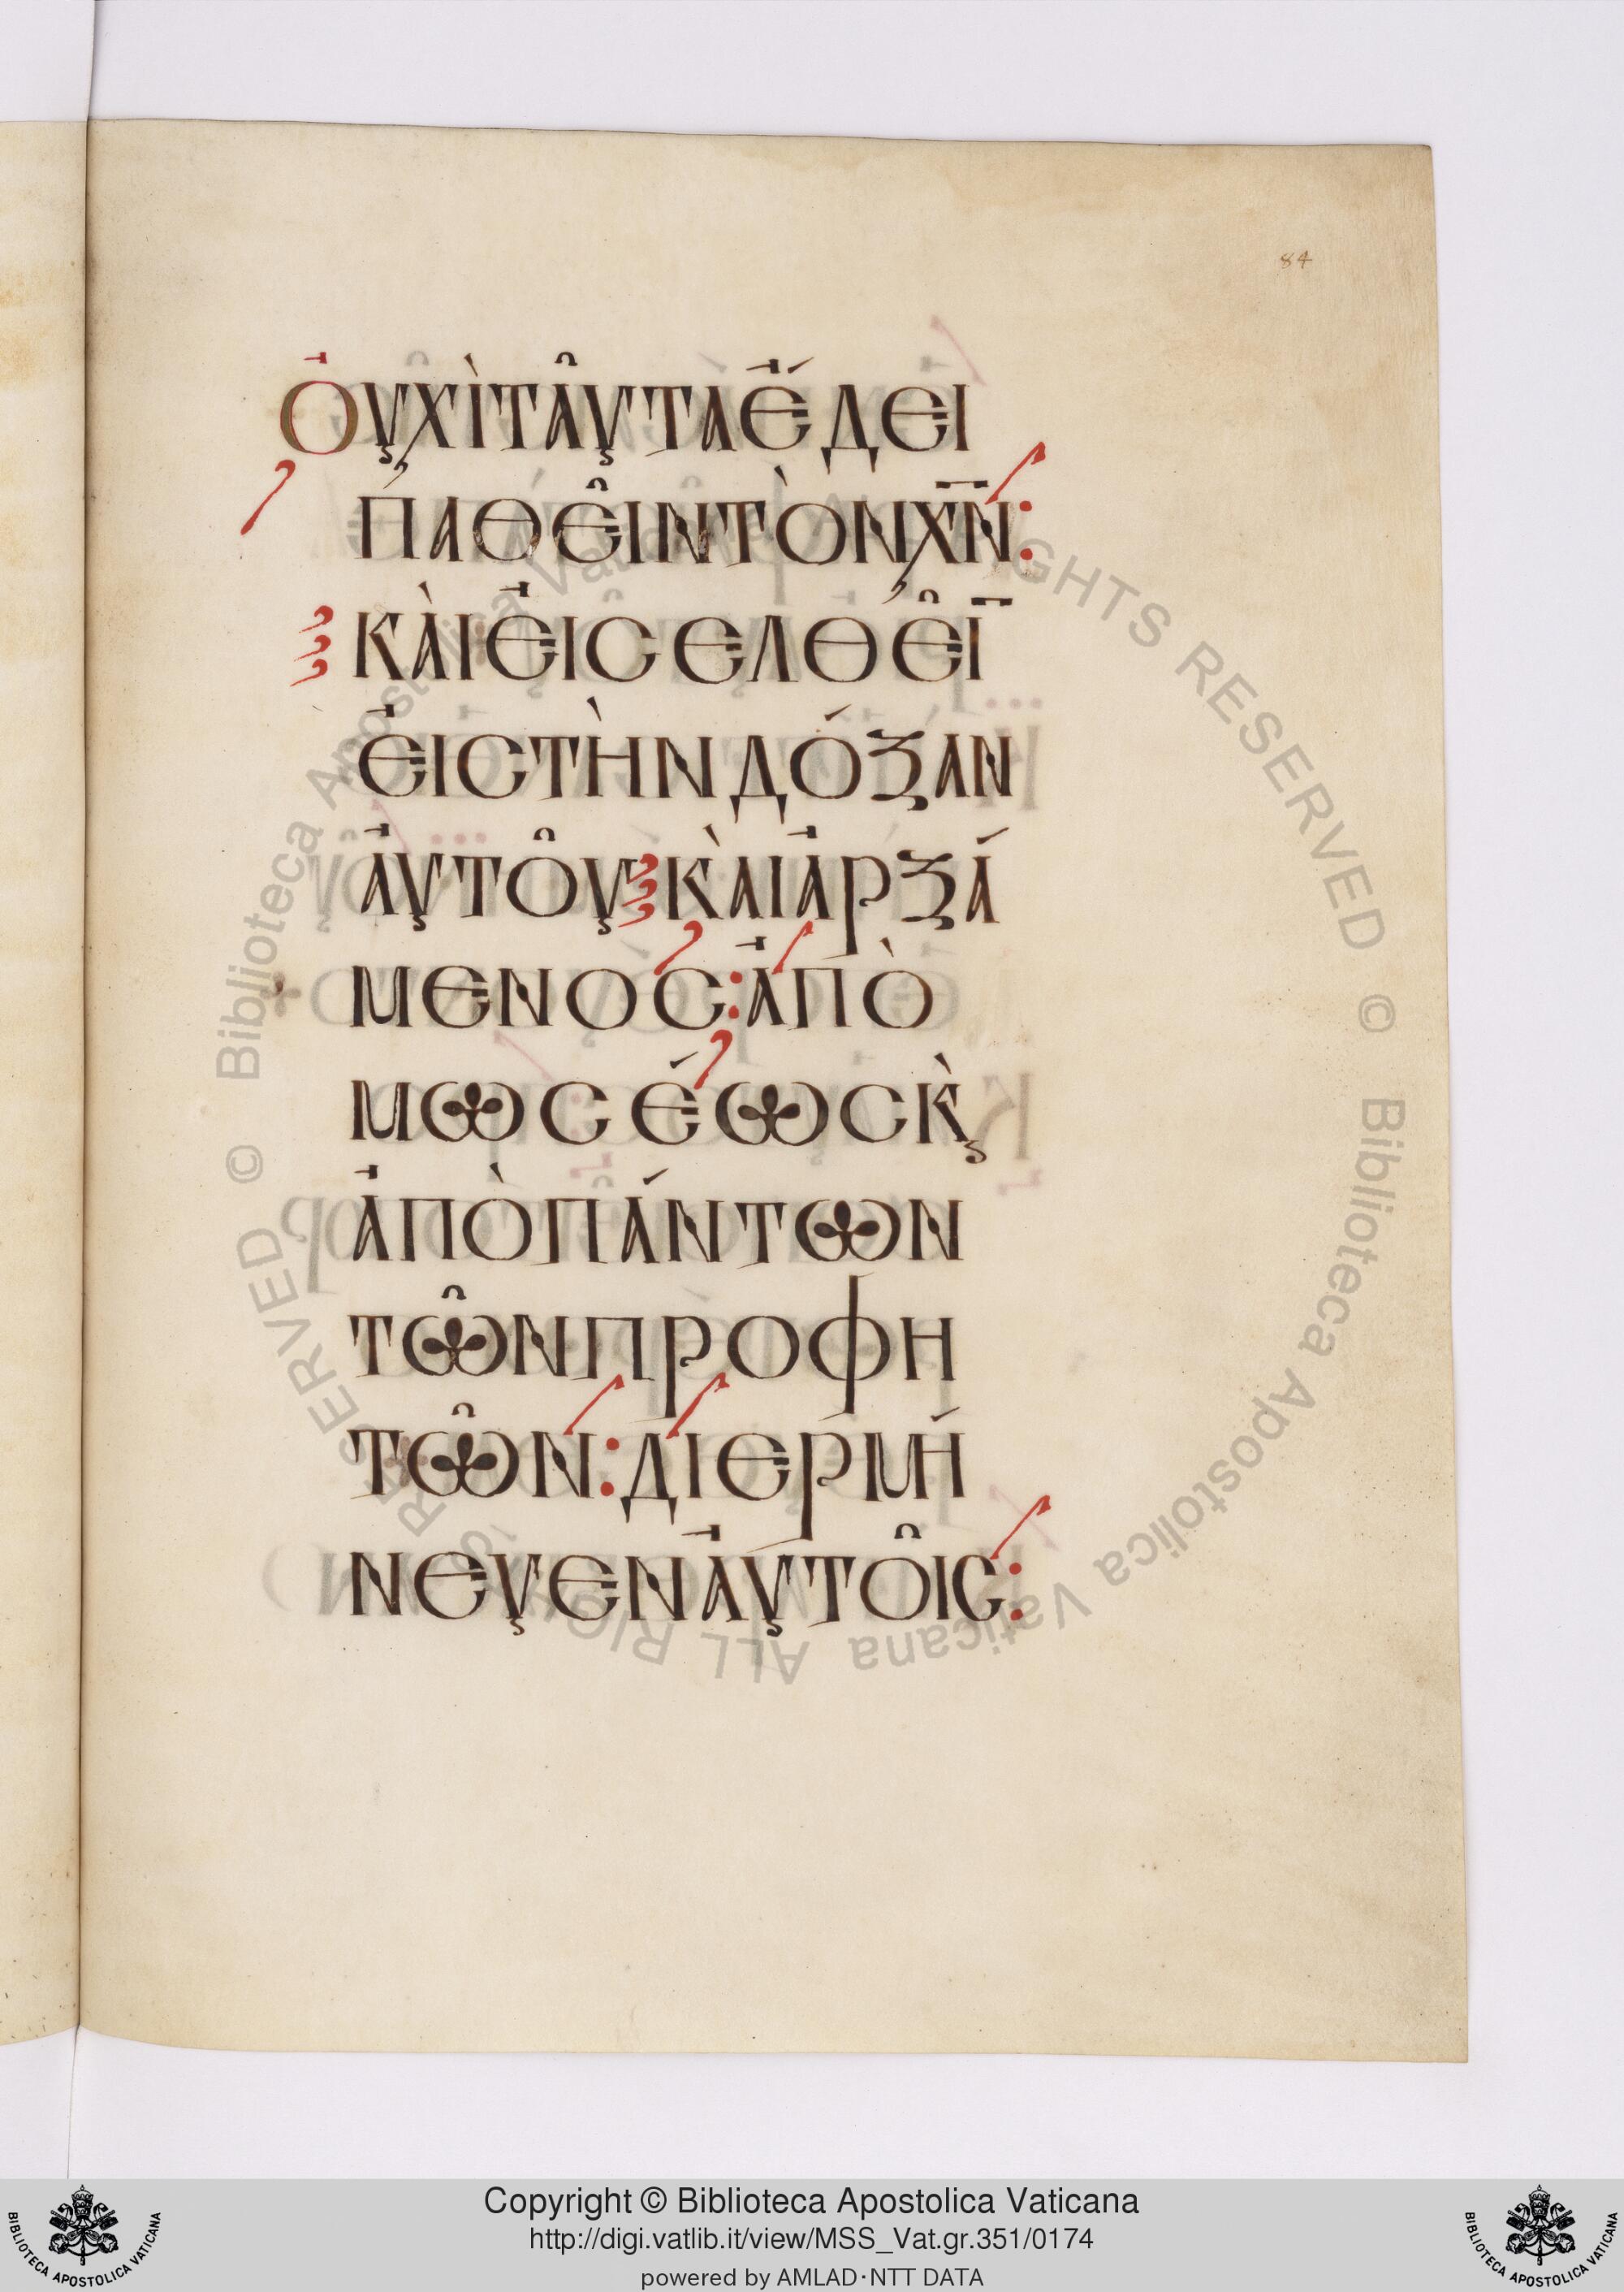 84
Ὀυχὶταῦταἔδει
παθεῖντὸνχ̅ν̅:
καὶεἰσελθεῖ̅
εἰστὴνδόξαν
ἀυτοῦκαὶἀρξά
μενος:ἀπὸ
μωσέωσκ̀
ἀπὸπάντων
τῶνπροφη
τῶν:διερμή
νευενἀυτοῖς:
© Biblioteca Apostolica Vaticana ALL RIGHTS RESERVED © Biblioteca Apostolica Vaticana ALL RIGHTS RESERVED
BIBLIOTECA APOSTOLICA VATICANA
Copyright © Biblioteca Apostolica Vaticana
http://digi.vatlib.it/view/MSS_Vat.gr.351/0174
powered by AMLAD·NTT DATA
BIBLIOTECA APOSTOLICA VATICANA